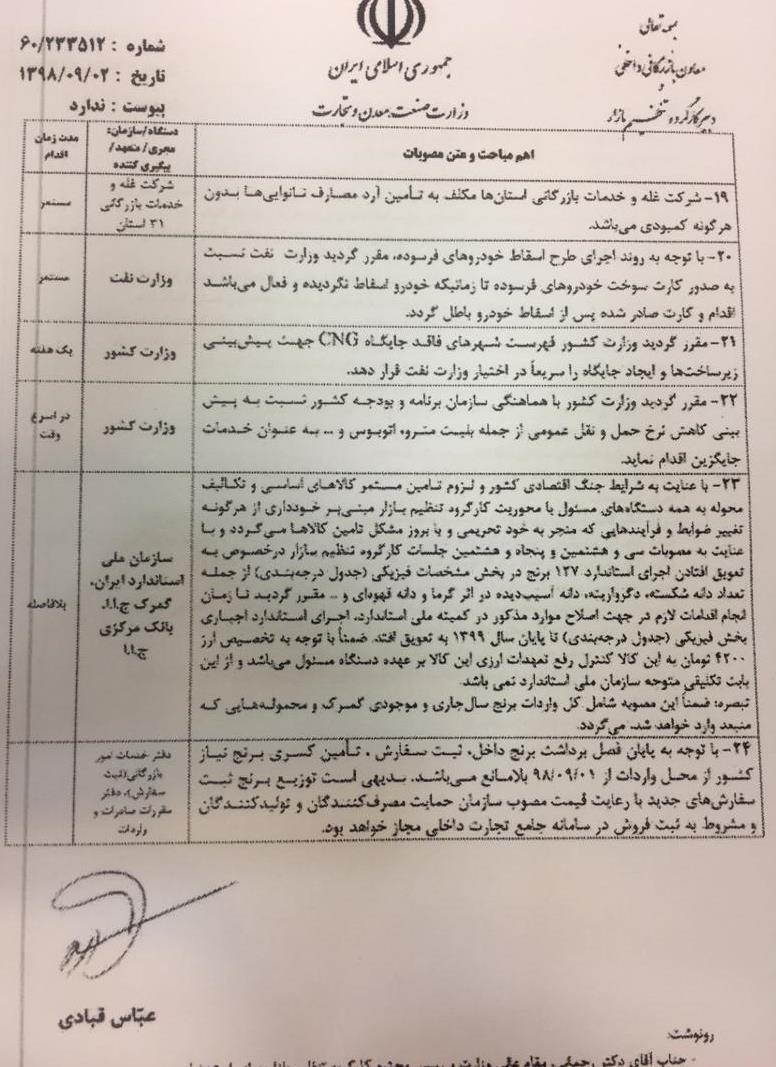 بسمه تعالی
معاون بازرگانی داخلی
و
دبیر کارگروه تنظیم بازار
جمهوری اسلامی ایران
وزارت صنعت، معدن و تجارت
شماره : ۶۰/۲۳۳۵۱۲
تاریخ : ۱۳۹۸/۰۹/۰۲
پیوست : ندارد
اهم مباحث و متن مصوبات
دستگاه/سازمان:
مجری/ متعهد/
پیگیری کننده
مدت زمان
اقدام
۱۹- شرکت غله و خدمات بازرگانی استان‌ها مکلف به تأمین آرد مصارف نانوایی‌ها بدون
هرگونه کمبودی می‌باشد.
شرکت غله و
خدمات بازرگانی
۳۱ استان
مستمر
۲۰- با توجه به روند اجرای طرح اسقاط خودروهای فرسوده، مقرر گردید وزارت نفت نسبت
به صدور کارت سوخت خودروهای فرسوده تا زمانیکه خودرو اسقاط نگردیده و فعال می‌باشد
اقدام و کارت صادر شده پس از اسقاط خودرو باطل گردد.
وزارت نفت
مستمر
۲۱- مقرر گردید وزارت کشور فهرست شهرهای فاقد جایگاه CNG جهت پیش‌بینی
زیرساخت‌ها و ایجاد جایگاه را سریعاً در اختیار وزارت نفت قرار دهد.
وزارت کشور
یک هفته
۲۲- مقرر گردید وزارت کشور با هماهنگی سازمان برنامه و بودجه کشور نسبت به پیش
بینی کاهش نرخ حمل و نقل عمومی از جمله بلیت مترو، اتوبوس و ... به عنوان خدمات
جایگزین اقدام نماید.
وزارت کشور
در اسرع
وقت
۲۳- با عنایت به شرایط جنگ اقتصادی کشور و لزوم تامین مستمر کالاهای اساسی و تکالیف
محوله به همه دستگاه‌های مسئول با محوریت کارگروه تنظیم بازار مبنی‌بر خودداری از هرگونه
تغییر ضوابط و فرآیندهایی که منجر به خود تحریمی و یا بروز مشکل تامین کالاها می‌گردد و با
عنایت به مصوبات سی و هشتمین و پنجاه و هشتمین جلسات کارگروه تنظیم بازار درخصوص به
تعویق افتادن اجرای استاندارد ۱۲۷ برنج در بخش مشخصات فیزیکی (جدول درجه‌بندی) از جمله
تعداد دانه شکسته، دگرواریته، دانه آسیب‌دیده در اثر گرما و دانه قهوه‌ای و ... مقرر گردید تا زمان
انجام اقدامات لازم در جهت اصلاح موارد مذکور در کمیته ملی استاندارد، اجرای استاندارد اجباری
بخش فیزیکی (جدول درجه‌بندی) تا پایان سال ۱۳۹۹ به تعویق افتد. ضمناً با توجه به تخصیص ارز
۴۲۰۰ تومان به این کالا کنترل رفع تعهدات ارزی این کالا بر عهده دستگاه مسئول می‌باشد و از این
بابت تکلیفی متوجه سازمان ملی استاندارد نمی باشد.
تبصره: ضمناً این مصوبه شامل کل واردات برنج سال‌جاری و موجودی گمرک و محموله‌هایی که
منبعد وارد خواهد شد، می‌گردد.
سازمان ملی
استاندارد ایران،
گمرک ج.ا.ا،
بانک مرکزی
ج.ا.ا
بلافاصله
۲۴- با توجه به پایان فصل برداشت برنج داخل، ثبت سفارش ، تأمین کسری برنج نیاز
کشور از محل واردات از ۹۸/۰۹/۰۱ بلامانع می‌باشد. بدیهی است توزیع برنج ثبت
سفارش‌های جدید با رعایت قیمت مصوب سازمان حمایت مصرف‌کنندگان و تولیدکنندگان
و مشروط به ثبت فروش در سامانه جامع تجارت داخلی مجاز خواهد بود.
دفتر خدمات امور
بازرگانی(ثبت
سفارش)، دفتر
مقررات صادرات و
واردات
عباس قبادی
رونوشت:
- جناب آقای دکتر رحمانی، مقام عالی وزارت